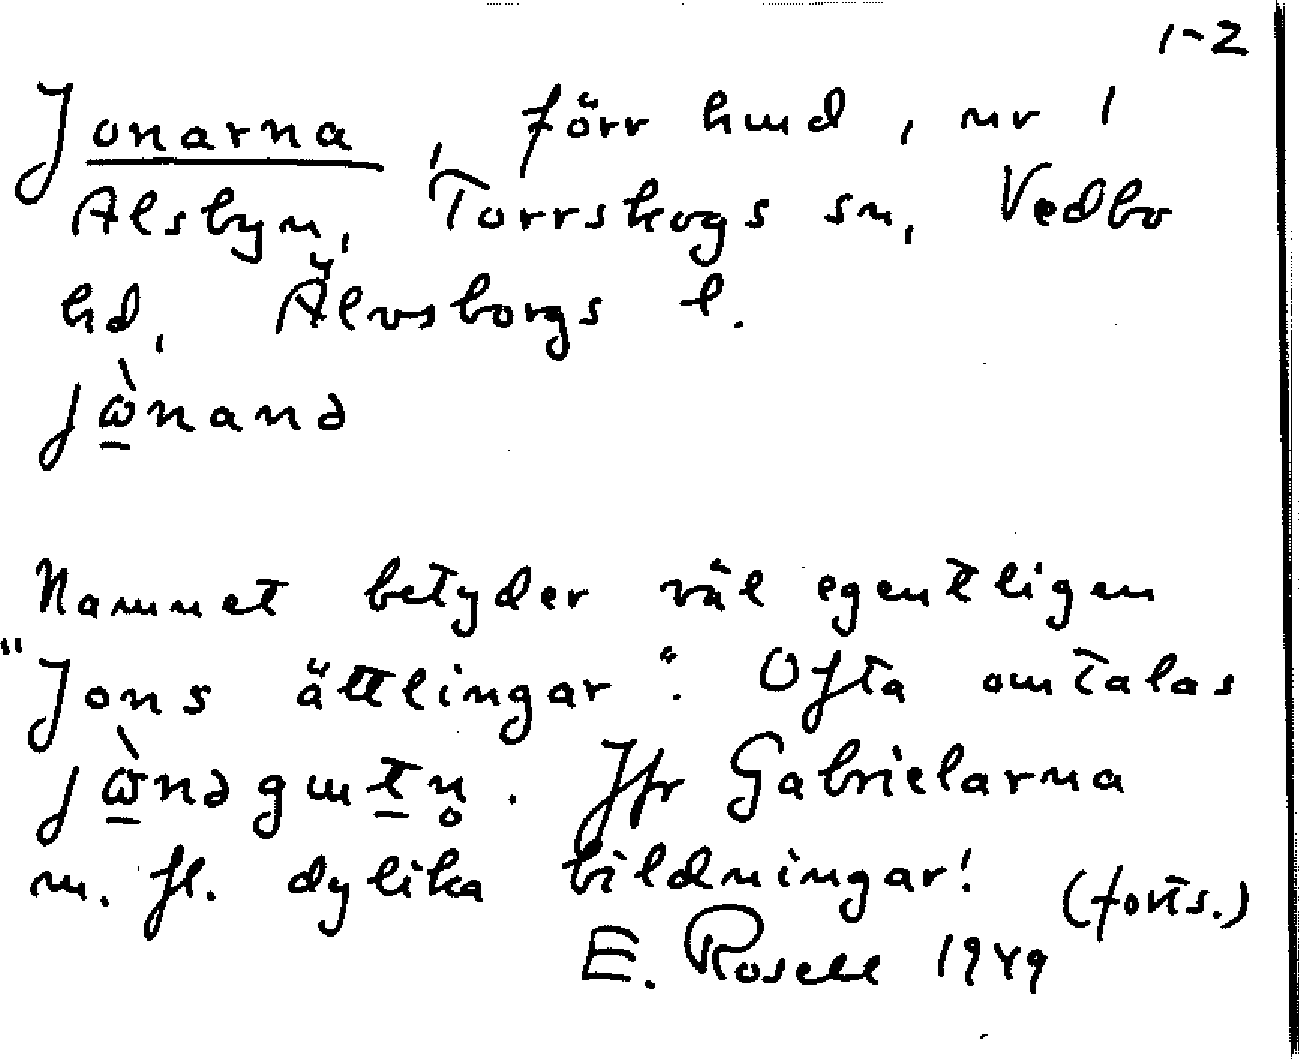 1-2
Jonarna, förr hmd, nr 1
Alsbyn, Torrskogs sn, Vedbo
hd, Älvsborgs l.
jὼ̱nanə
Namnet betyder väl egentligen
"Jons ättlingar". Ofta omtalas
jὼ̱nəgmṯn̥. Jfr Gabrielarna
m. fl. dylika bildningar! (forts.)
E. Rosell 1949